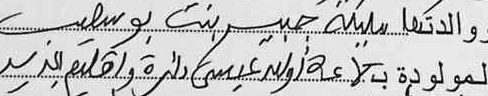 ووالدتها مليكة جبير بنت بوسلهم
المولودة ب أولاد عيسى دائرة وإقليم الجديدة